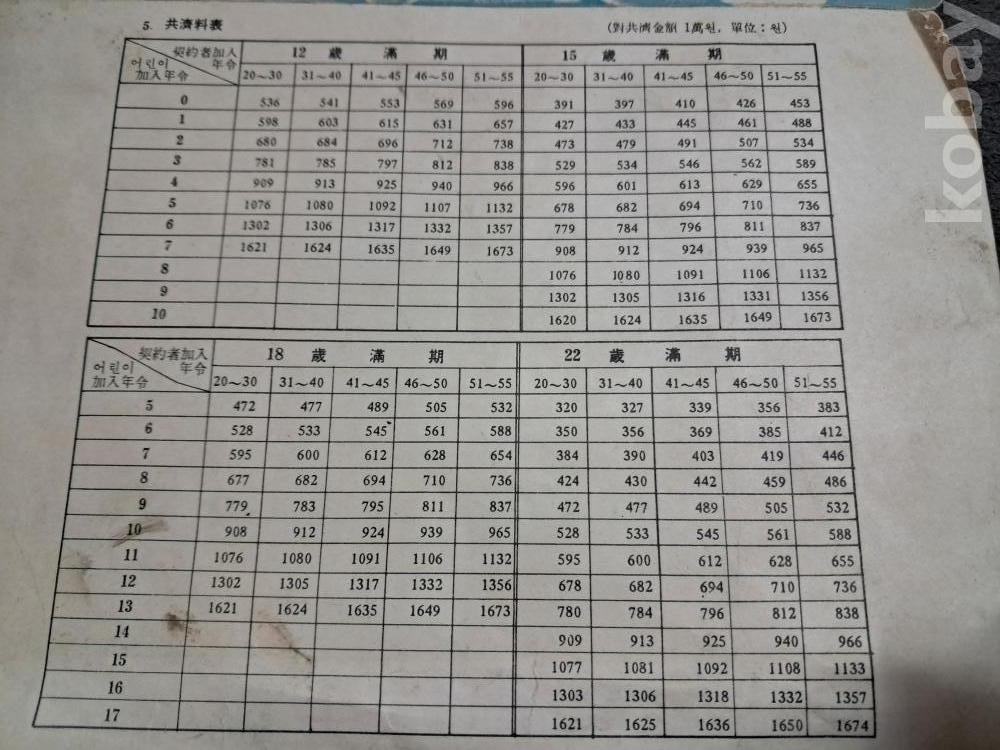 5. 共濟料表
(對共濟金額 1萬원, 單位：원)
契約者加入年令 12 歲 滿 期 15 歲 滿 期
어린이加入年令 20～30 31～40 41～45 46～50 51～55 20～30 31～40 41～45 46～50 51～55
0 536 541 553 569 596 391 397 410 426 453
1 598 603 615 631 657 427 433 445 461 488
2 680 684 696 712 738 473 479 491 507 534
3 781 785 797 812 838 529 534 546 562 589
4 909 913 925 940 966 596 601 613 629 655
5 1076 1080 1092 1107 1132 678 682 694 710 736
6 1302 1306 1317 1332 1357 779 784 796 811 837
7 1621 1624 1635 1649 1673 908 912 924 939 965
8 1076 1080 1091 1106 1132
9 1302 1305 1316 1331 1356
10 1620 1624 1635 1649 1673
契約者加入年令 18 歲 滿 期 22 歲 滿 期
어린이加入年令 20～30 31～40 41～45 46～50 51～55 20～30 31～40 41～45 46～50 51～55
5 472 477 489 505 532 320 327 339 356 383
6 528 533 545 561 588 350 356 369 385 412
7 595 600 612 628 654 384 390 403 419 446
8 677 682 694 710 736 424 430 442 459 486
9 779 783 795 811 837 472 477 489 505 532
10 908 912 924 939 965 528 533 545 561 588
11 1076 1080 1091 1106 1132 595 600 612 628 655
12 1302 1305 1317 1332 1356 678 682 694 710 736
13 1621 1624 1635 1649 1673 780 784 796 812 838
14 909 913 925 940 966
15 1077 1081 1092 1108 1133
16 1303 1306 1318 1332 1357
17 1621 1625 1636 1650 1674
kobay